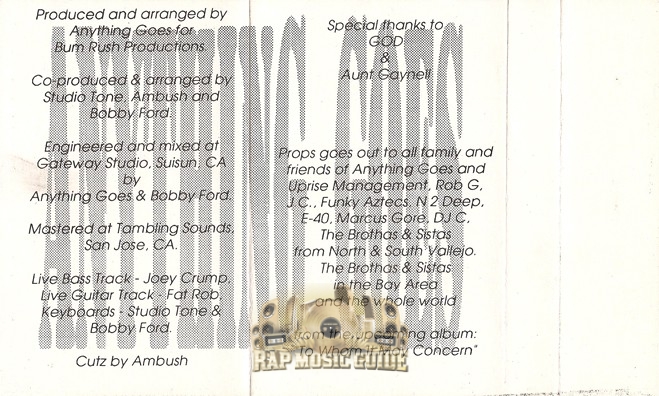 Produced and arranged by
Anything Goes for
Bum Rush Productions.
Co-produced & arranged by
Studio Tone, Ambush and
Bobby Ford.
Engineered and mixed at
Gateway Studio, Suisun, CA
by
Anything Goes & Bobby Ford.
Mastered at Tambling Sounds,
San Jose, CA.
Live Bass Track - Joey Crump,
Live Guitar Track - Fat Rob,
Keyboards - Studio Tone &
Bobby Ford.
Cutz by Ambush
Special thanks to
GOD
&
Aunt Gaynell
Props goes out to all family and
friends of Anything Goes and
Uprise Management, Rob G,
J.C., Funky Aztecs, N 2 Deep,
E-40, Marcus Gore, DJ C,
The Brothas & Sistas
from North & South Vallejo.
The Brothas & Sistas
in the Bay Area
and the whole world
from the upcoming album:
"To Whom It May Concern"
ANYTHING GOES
RAP MUSIC GUIDE